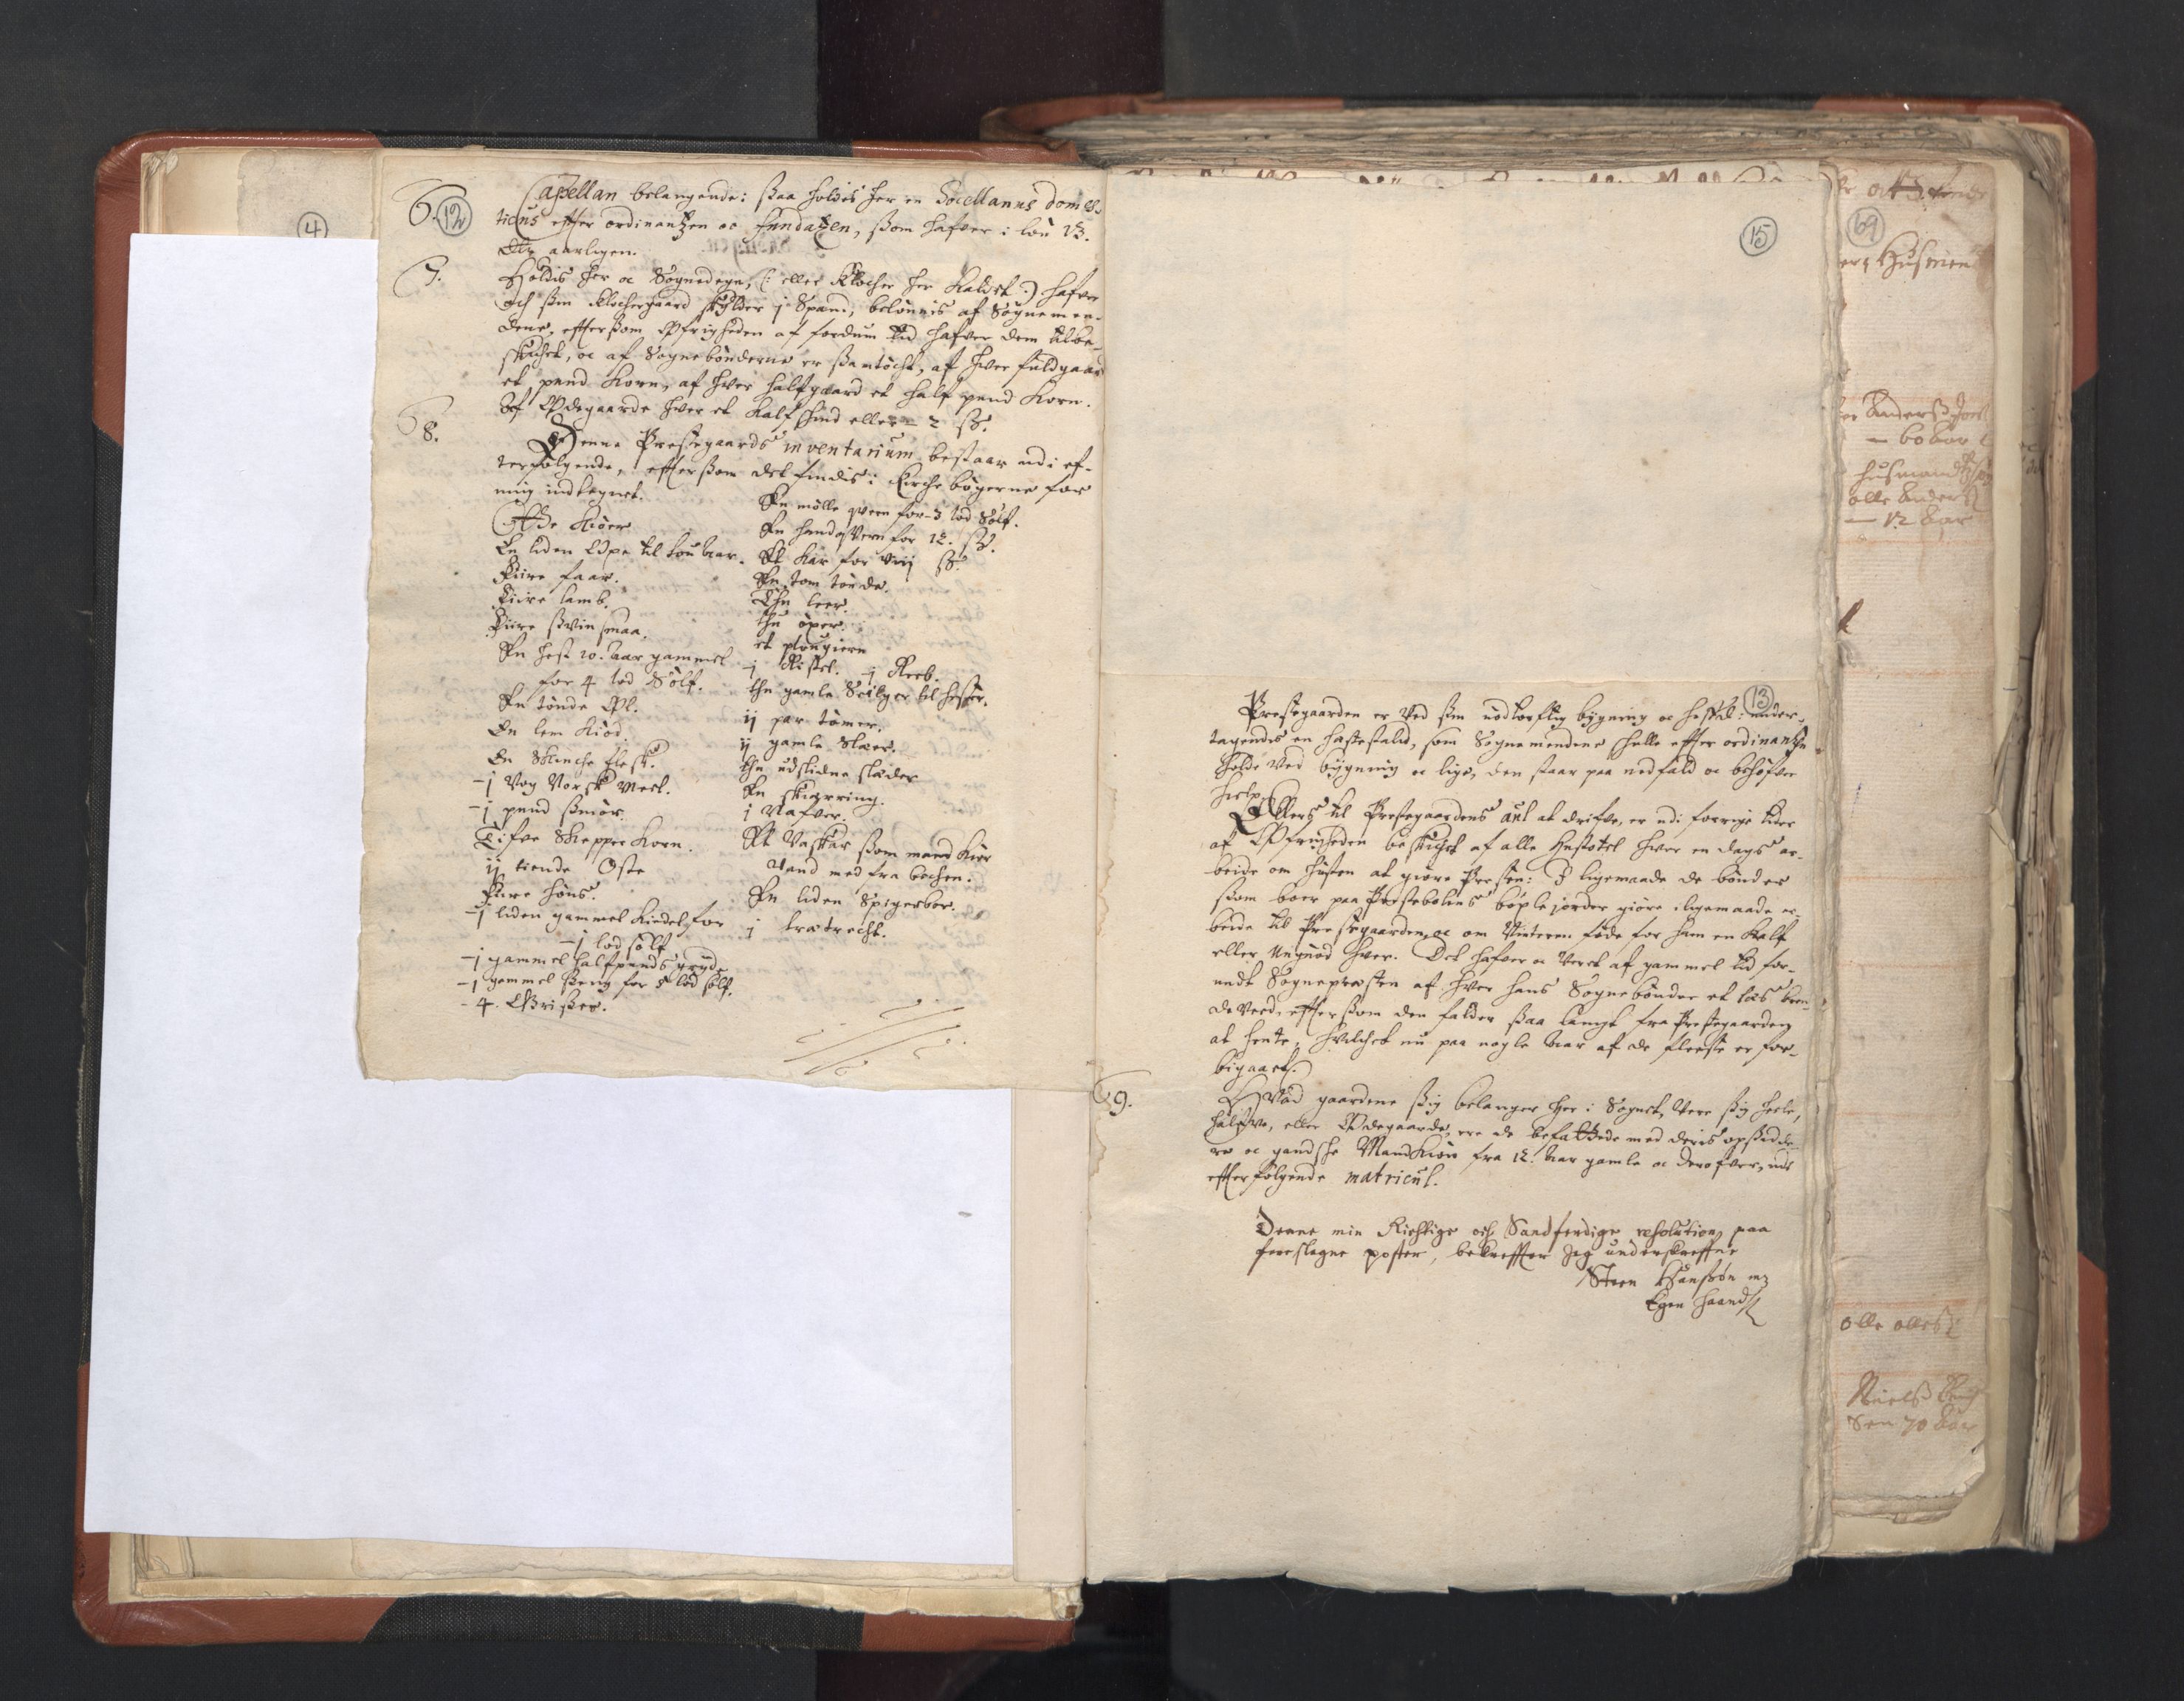 6. 12
Capellan belangende: ßaa holdis her en Sacellanus domes-
ticus effter ordinantzen oc fundatzen, ßom hafver i løn 12.
dlr aarligen.
7. Holdis her oc Sognedegn, (: eller Klocher her kaldet :) hafver
och sin Klochergaard skylder j Spand, belønnis af Sognemen-
dene, effterßom Øfrigheden af fordum tid hafver dem tilbe-
skichet, oc af Sognebønderne er ßamtøcht, af hver fuldgaard
et pund Korn, af hver halfgaard et half pund Korn.
Af Ødegaarde hver et Kalfskind eller 2 sß.
8. Denne Prestegaards inventarium bestaar udi ef-
terfølgende, effterßom det findis i Kirche bøgerne for
mig indtegnet.
Otte Kiøer
En liden Qvie til tou aar.
Fiire faar.
Fiire lamb.
Fiire ßvin smaa.
En hest 10. aar gammel
for 4 lod Sølf.
En tønde Øl.
En lem Kiød.
En Skinche flesk.
-j Vog Norsk Meel.
-j pund ßmør.
Tifve Skepper Korn.
ij tiende Oste
Fiire høns.
-j liden gammel Kiedel for
-j lod sølf
-j gammel halfpunds gryde
-j gammel ßeng for 5 lod sølf.
- 4. Grißer.
En mølle qvern for 3 lod Sølf.
En handqvern for 12. sß.
Et Kar for viij sß.
En tom tønde.
Thu leer.
thu øxer.
et plougiern
-j Ristel. j Reeb.
thu gamle Seilger til hester.
ij par tømer.
ij gamle Slaer.
thu udslidne slæder
En skiærring.
j Nafver.
Et Vaskar ßom mand Kiør
Vand med fra bechen.
En liden Spigerbor.
j trætrecht.
15
13
Prestegaarden er ved sin nødtørftig bygning oc husse: under-
tagendis en hestestald, som Sognemendene skulle effter ordinantzen
holde ved bygning oc lige, den staar paa nedfald oc behøfver
hielp.
Ellers til Prestegaardens aul at drifve, er udi forrige tider
af Øfrigheden beskichet af alle Husotel hver en dags ar-
beide om høsten at giøre Presten: I ligemaade de bønder
ßom boer paa Prestebolens bøxle jorder giøre iligemaade ar-
beide til Prestegaarden, oc om Vinteren føde for ham en Kalf
eller ungnød hver. Det hafver oc verit af gammel tid for-
undt Sognepresten af hver hans Sognebønder et læs bren-
de veed, effterßom den falder ßaa langt fra Prestegaarden
at hente, hvilchet nu paa nogle aar af de fleeste er for-
bigaaet.
9. Hvad gaardene ßig belanger her i Sognet, vere ßig heele,
halfve, eller Ødegaarde, ere de befattede med deris opsidde-
re oc gandske Mandkiøn fra 12. aar gamle oc derofver, udi
effterfølgende matricul.
Denne min Richtige och Sandferdige resolution paa
foreslagne poster, bekreffter Jeg underskreffne
Steen Hanssøn mz
Egen haand
4
69
Husmend
60 aar
husmand
olle Anders
12 aar
olle olles
Niels
Sen 70 aar